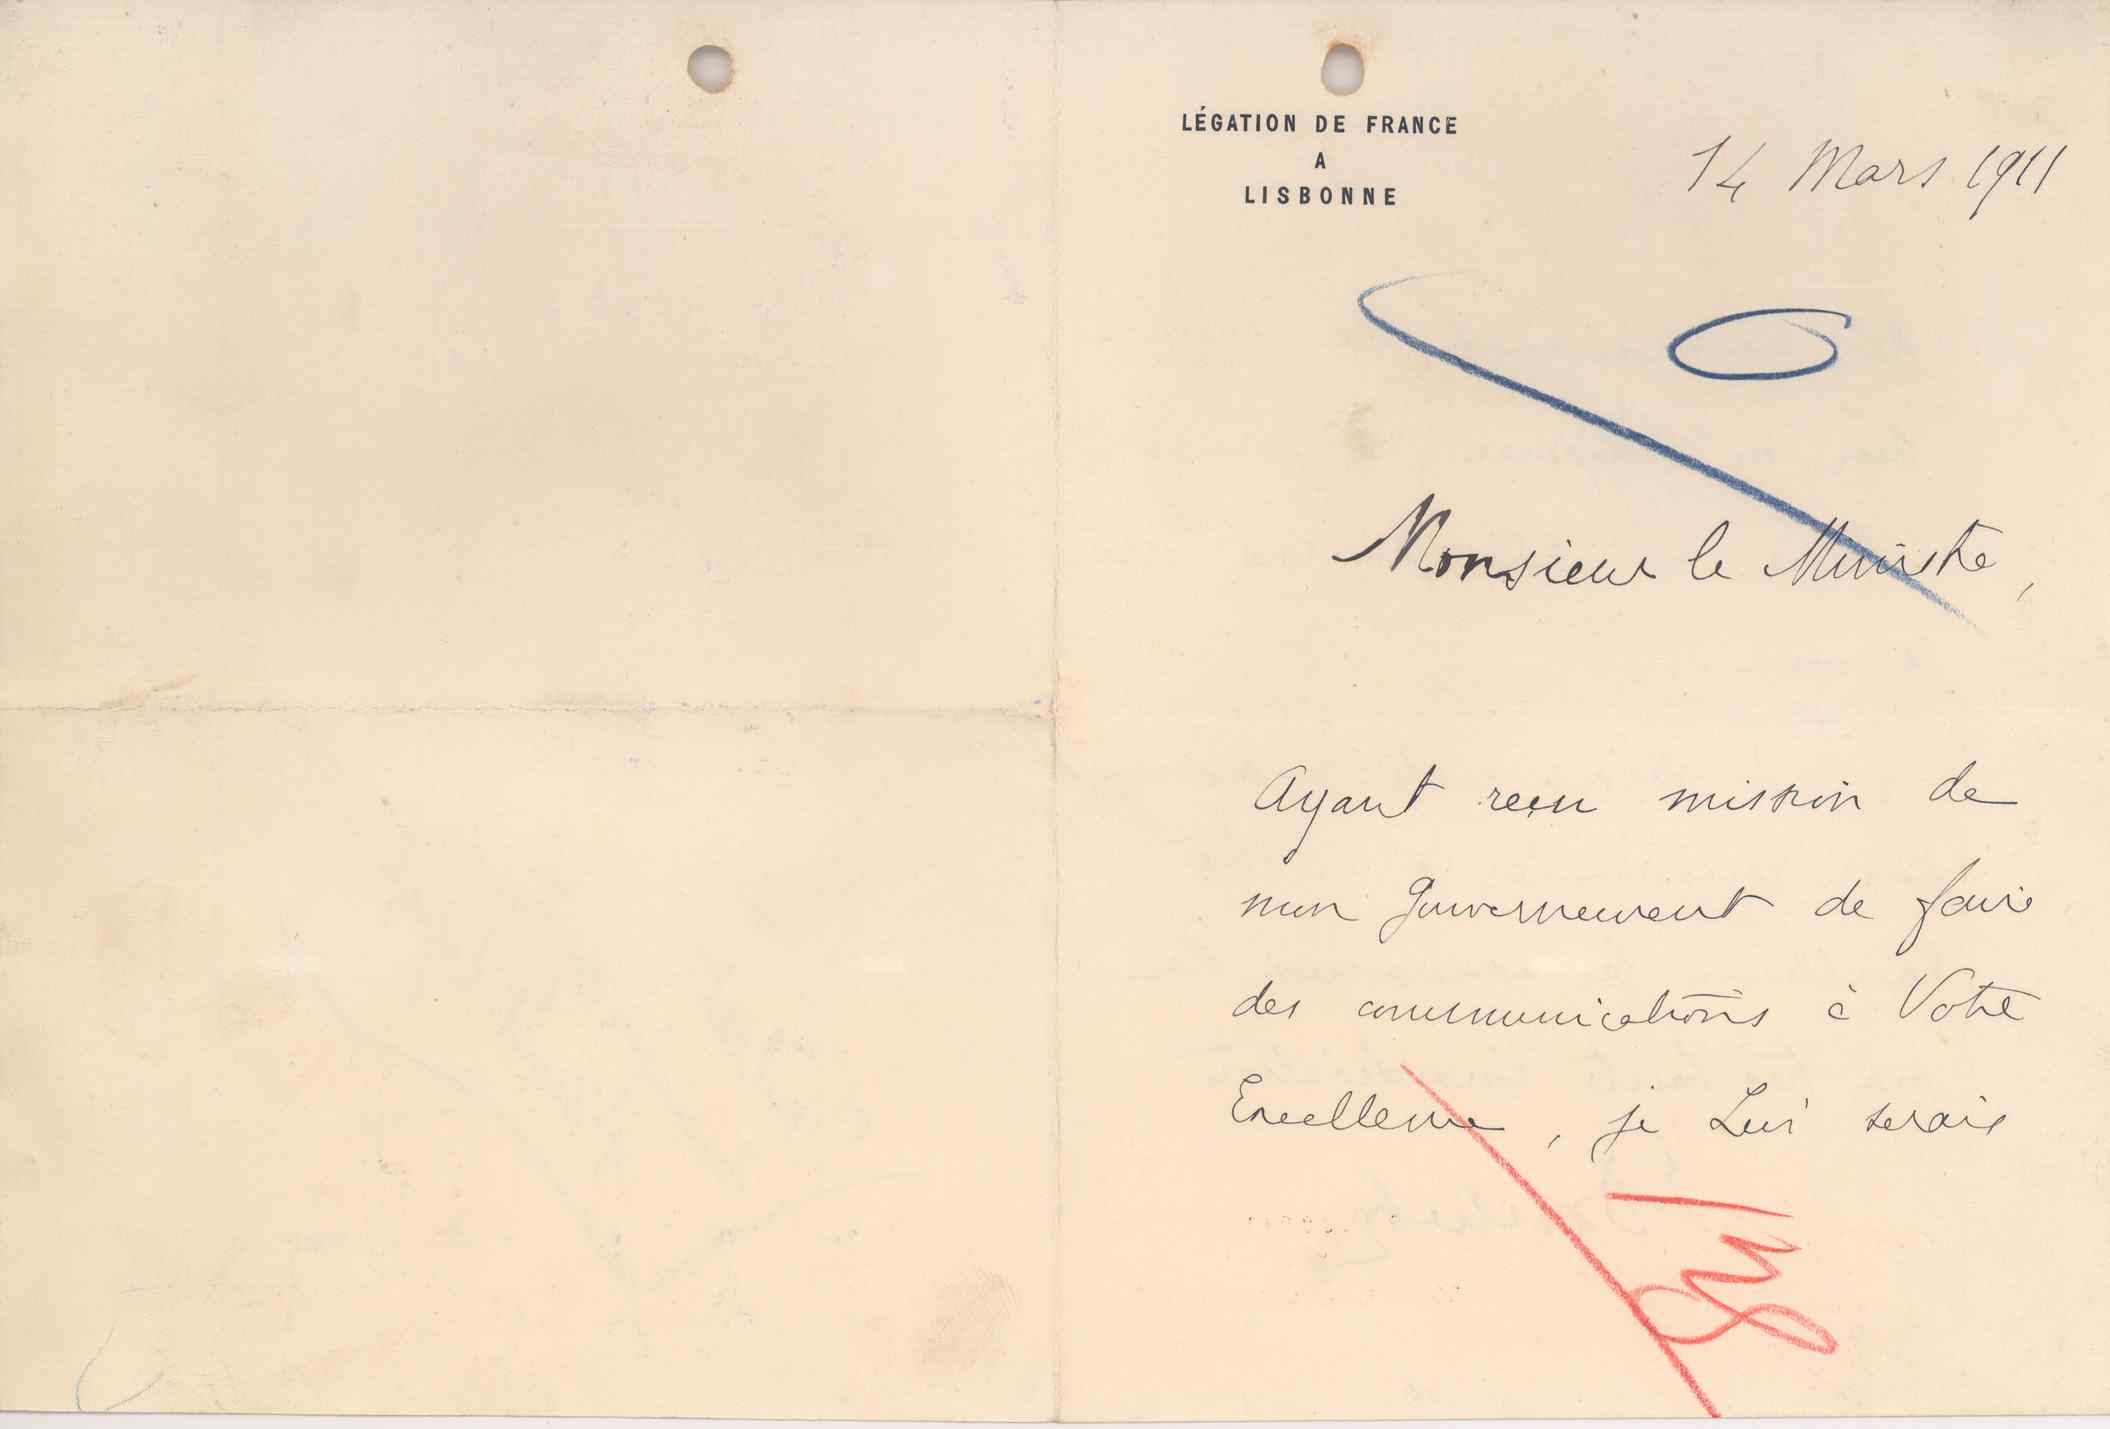 LÉGATION DE FRANCE
A
LISBONNE
14 Mars 1911
Monsieur le Ministre,
Ayant reçu mission de
mon Gouvernement de faire
des communications à Votre
Excellence, je Lui serais